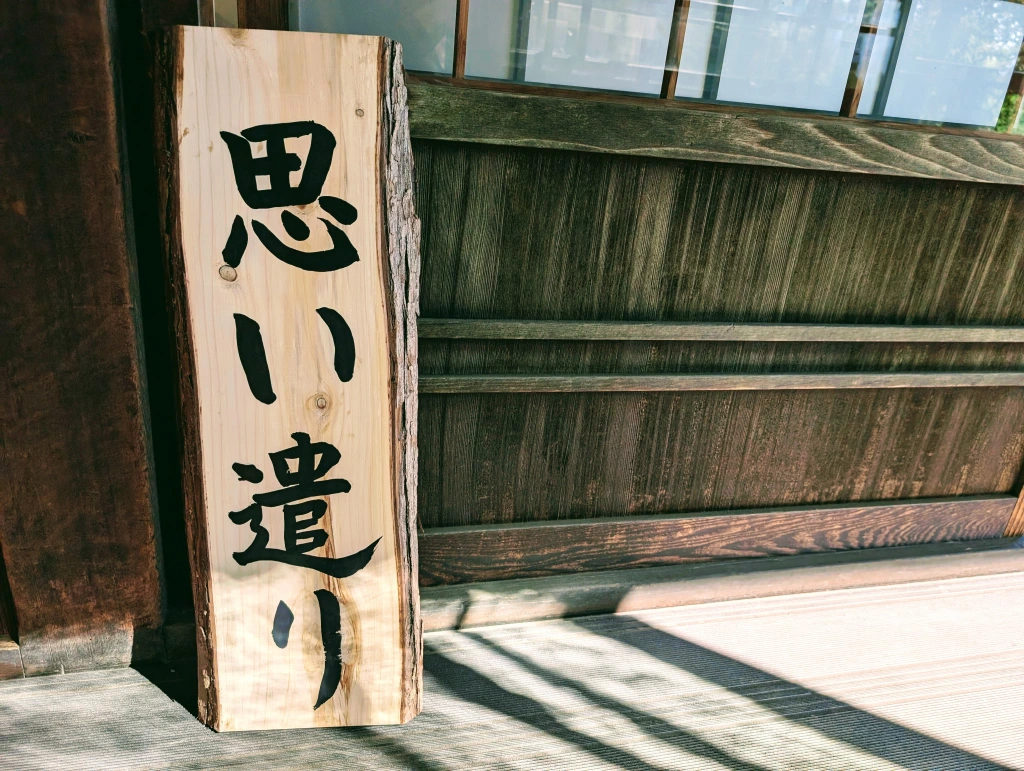 思い遣り